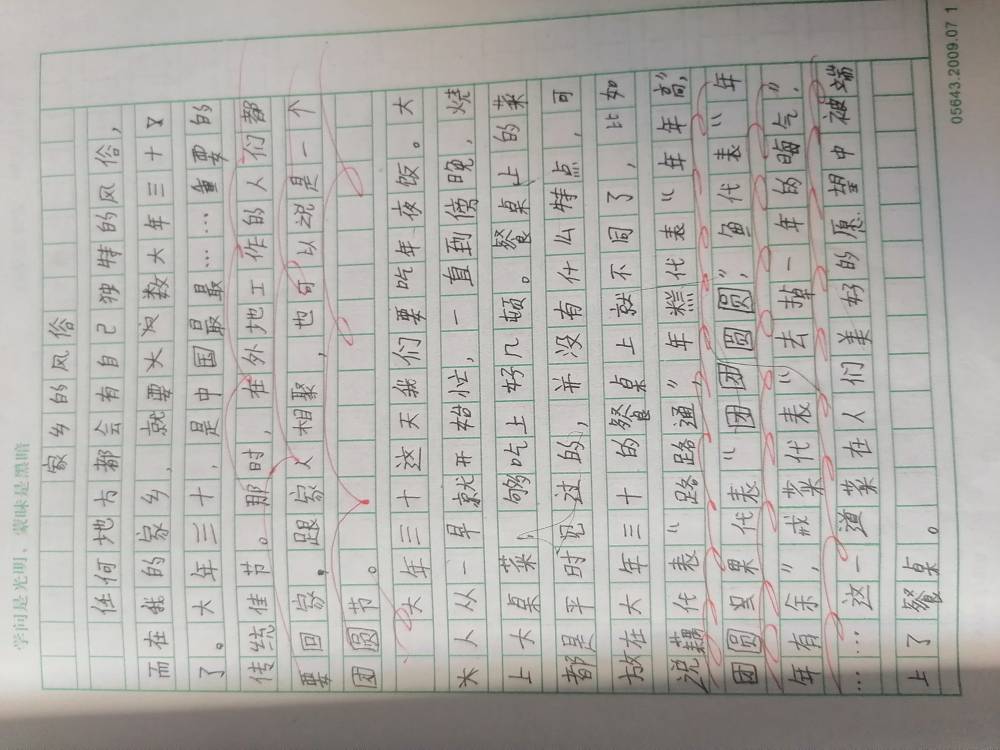 学问是光明，蒙昧是黑暗
家乡的风俗
任何地方都会有自己独特的风俗，
而在我的家乡，就要大数大年三十
了。大年三十，是中国最最……重要的
传统佳节。那时，在外地工作的人们都
要回家，跟家人相聚，也可以说是一个
团圆节。
大年三十这天我们要吃年夜饭。大
人从一早就开始忙，一直到傍晚，烧
上大桌菜，够吃上好几顿。餐桌上的菜
都是平时见过的，并没有什么特点，可
放在大年三十的餐桌上就不同了，比如
说藕代表“路路通”年糕代表“年年高”，
团圆果代表“团团圆圆”，鱼代表“年
年有余”，戒菜代表“去掉一年的晦气”．
……这一道菜在人们美好的愿望中被端
上了餐桌。
05643.2009.07 1